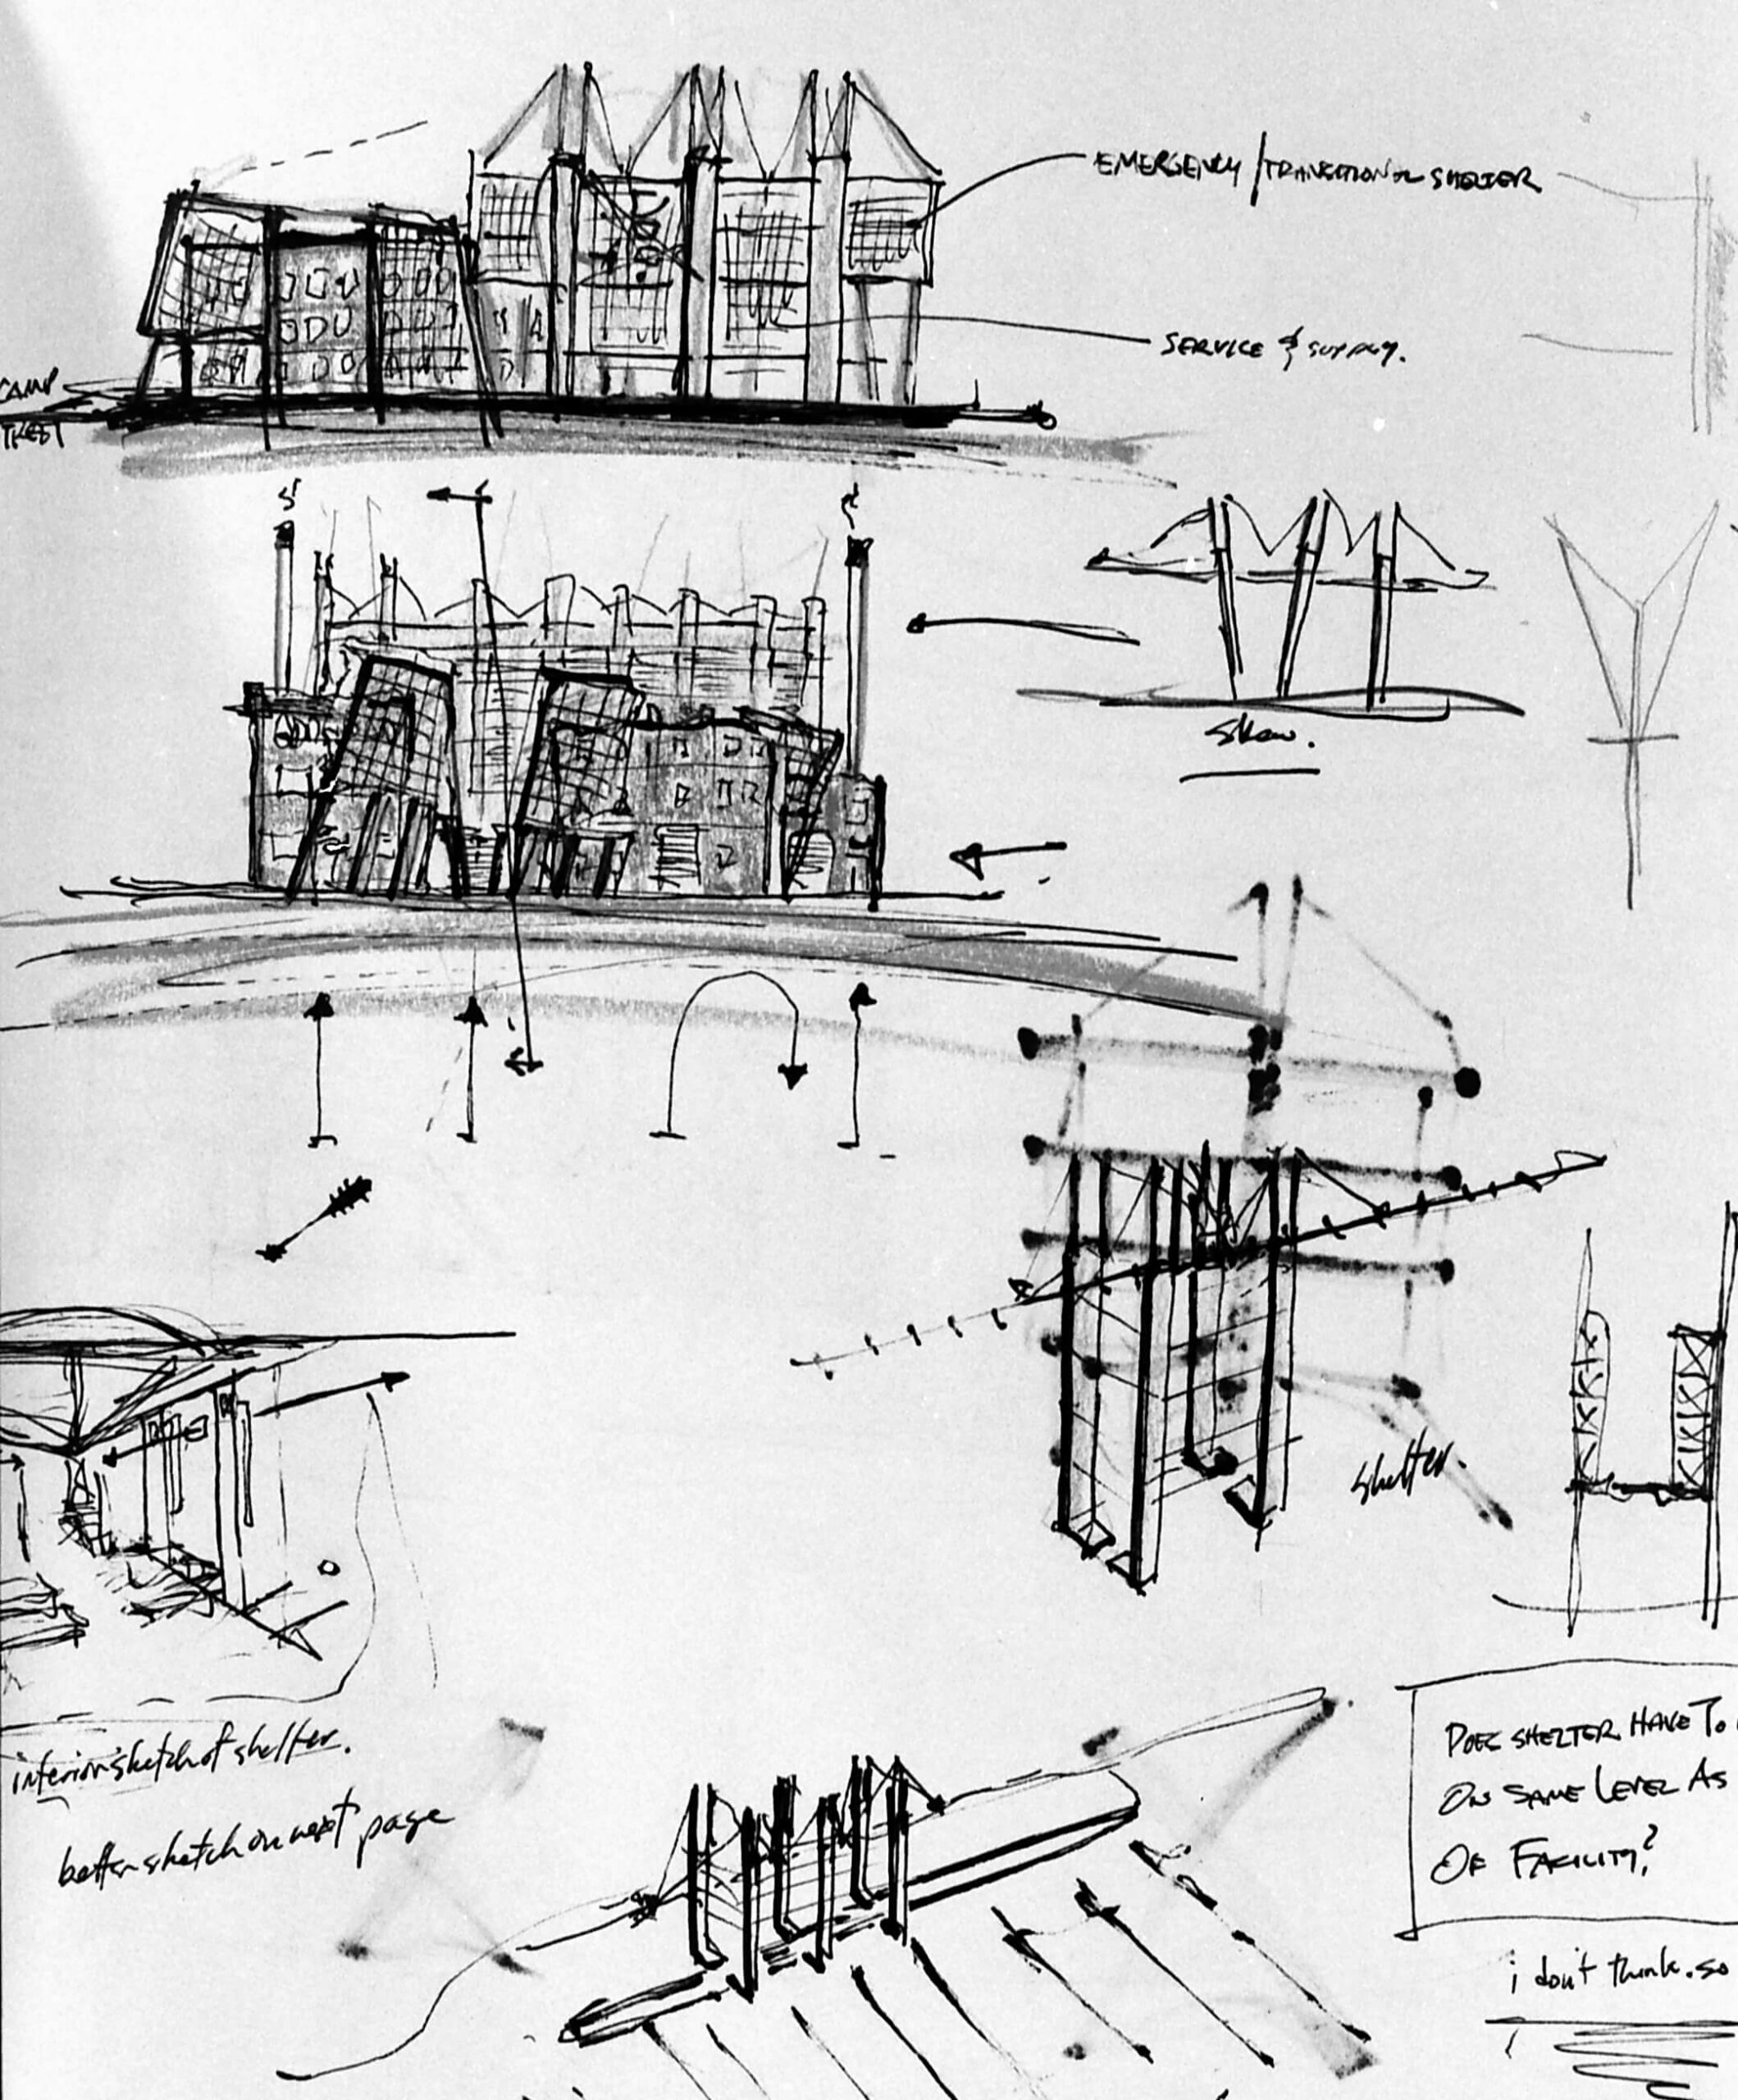 EMERGENCY / TRANSITIONAL SHELTER
SERVICE & SUPPLY.
CAMP
Skew.
shelter.
interior sketch of shelter.
better sketch on next page
DOES SHELTER HAVE TO
ON SAME LEVEL AS
OF FACILITY?
i don't think so